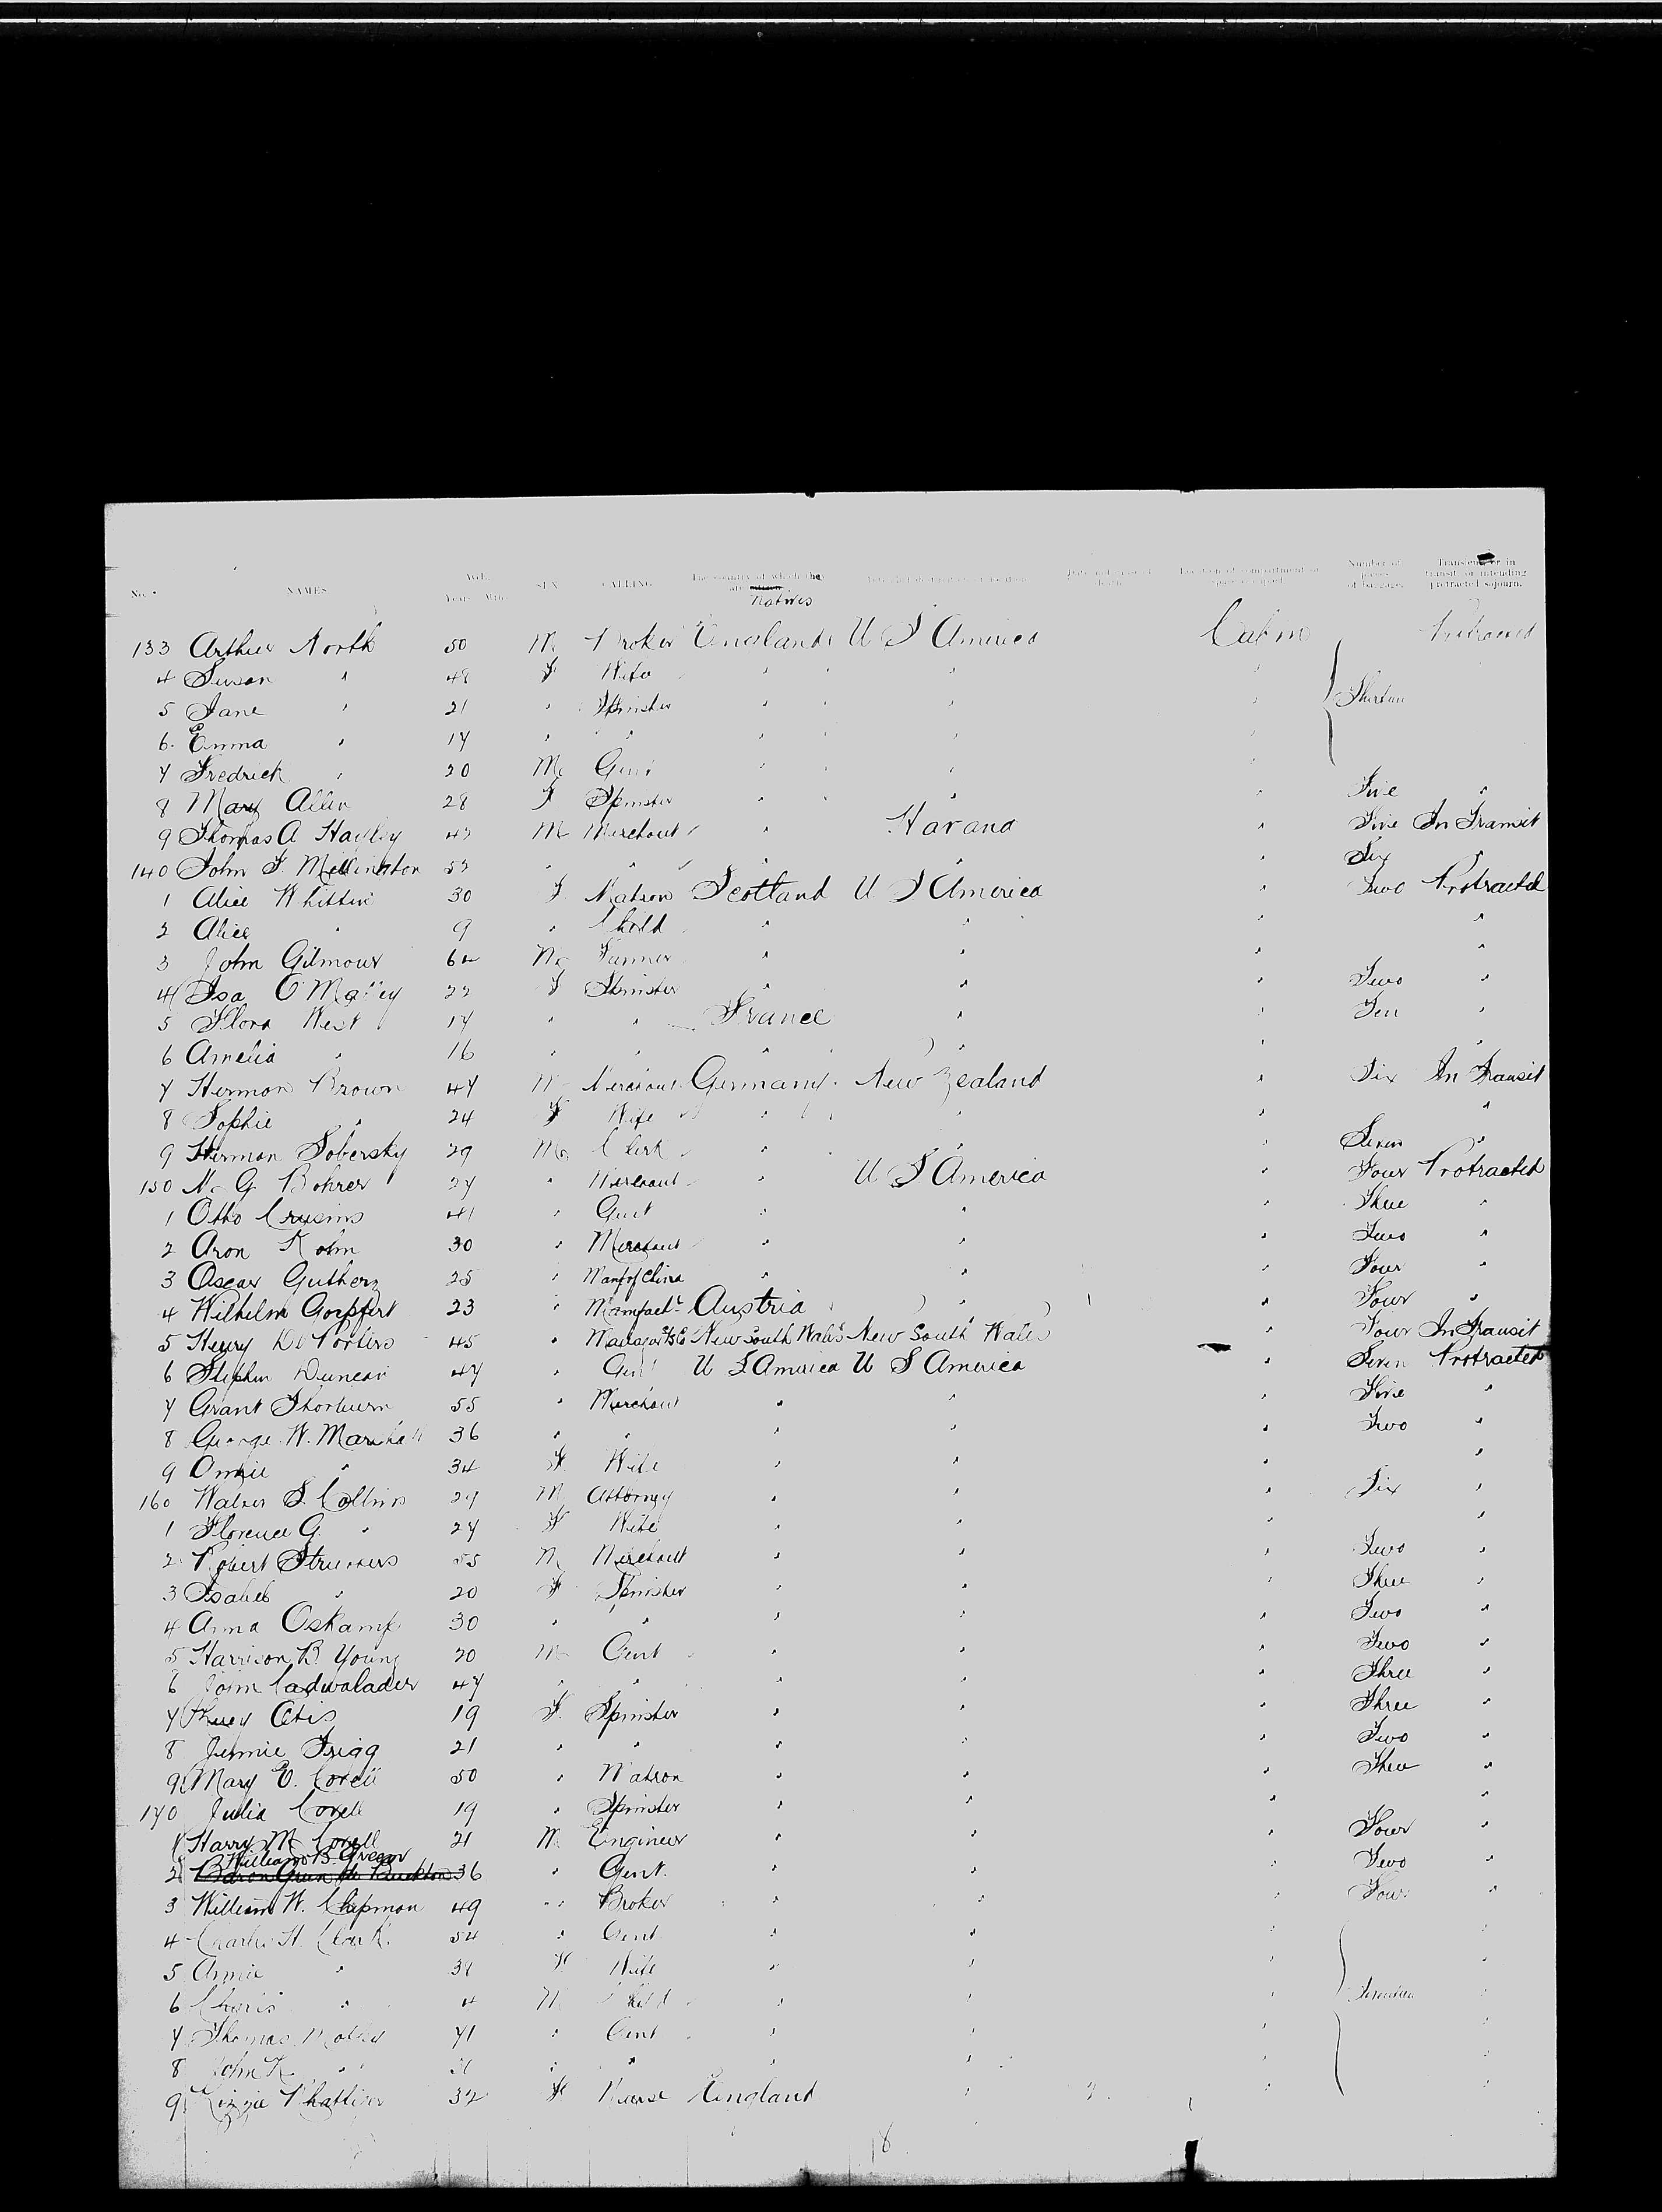 No. NAMES. AGE. Years Mths SEX CALLING The country of which they are Natives Number of pieces of baggage. Transient or in transit, or intending protracted sojourn.
133 Arthur North 50 M Broker England U S America Cabin Protracted
4 Susan " 48 F Wife " " "
5 Jane " 21 " Spinster " " "
6 Emma " 17 " " " " "
7 Fredrick " 20 M Gent " " "
8 Mary Allen 28 F Spinster " " " Five "
9 Thomas A Hayley 42 M Merchant " Havana " Five In Transit
140 John F. Millington 53 " " " " " Six "
1 Alice Whittin 30 F. Matron Scotland U S America " Two Protracted
2 Alice " 9 " Child " " " "
3 John Gilmour 62 M Farmer " " " "
4 Isa O'Malley 22 F Spinster " " " Two "
5 Flora West 17 " " France " " Ten "
6 Amelia " 16 " " " " " "
7 Hermon Brown 47 M Merchant Germany New Zealand " Six In Transit
8 Sophie " 24 F Wife " " " "
9 Hermon Sobersky 29 M Clerk " " " Seven "
150 N. G. Bohrer 27 " Merchant " U S America " Four Protracted
1 Otto Crusius 41 " Gent " " Three "
2 Aron Kohn 30 " Merchant " " " Two "
3 Oscar Gutherz 25 " Manf of China " " " Four "
4 Wilhelm Goepfert 23 " Manufactr Austria " " Four "
5 Henry De Porters 45 " New South Wales New South Wales " Four In Transit
6 Stephen Duncan 47 " Gent U S America U S America " Seven Protracted
7 Grant Thorburn 55 " Merchant " " " Five "
8 George W. Marshall 36 " " " " " Two "
9 " 34 F. Wife " " " "
160 Walter S. Collins 27 M Attorney " " " Six "
1 Florence G. " 27 F Wife " " " "
2 Robert Struthers 55 M Merchant " " " Two "
3 Isabel " 20 F Spinster " " " Three "
4 Anna Oskamp 30 " " " " " Two "
5 Harrison B. Young 20 M Gent " " " Two "
6 John Cadwalader 47 " " " " " Three "
7 Otis 19 F. Spinster " " " Three "
8 Jennie Trigg 21 " " " " Two "
9 Mary E. Covell 50 " Matron " " " Three "
170 Julia Covell 19 " Spinster " " " "
1 Harry M Covell 21 M. Engineer " " " Four "
William B. Green
2 36 " Gent. " " " Two "
3 William W. Chapman 49 " Broker " " " Four "
4 Charles H. Clark 54 " Gent " " " "
5 Annie " 37 F Wife " " " "
6 Charls " 4 M Child " " " "
7 Thomas 71 " Gent " " " "
8 John K. " " " " " " "
9 Lizzie 32 F Nurse England " " "
18